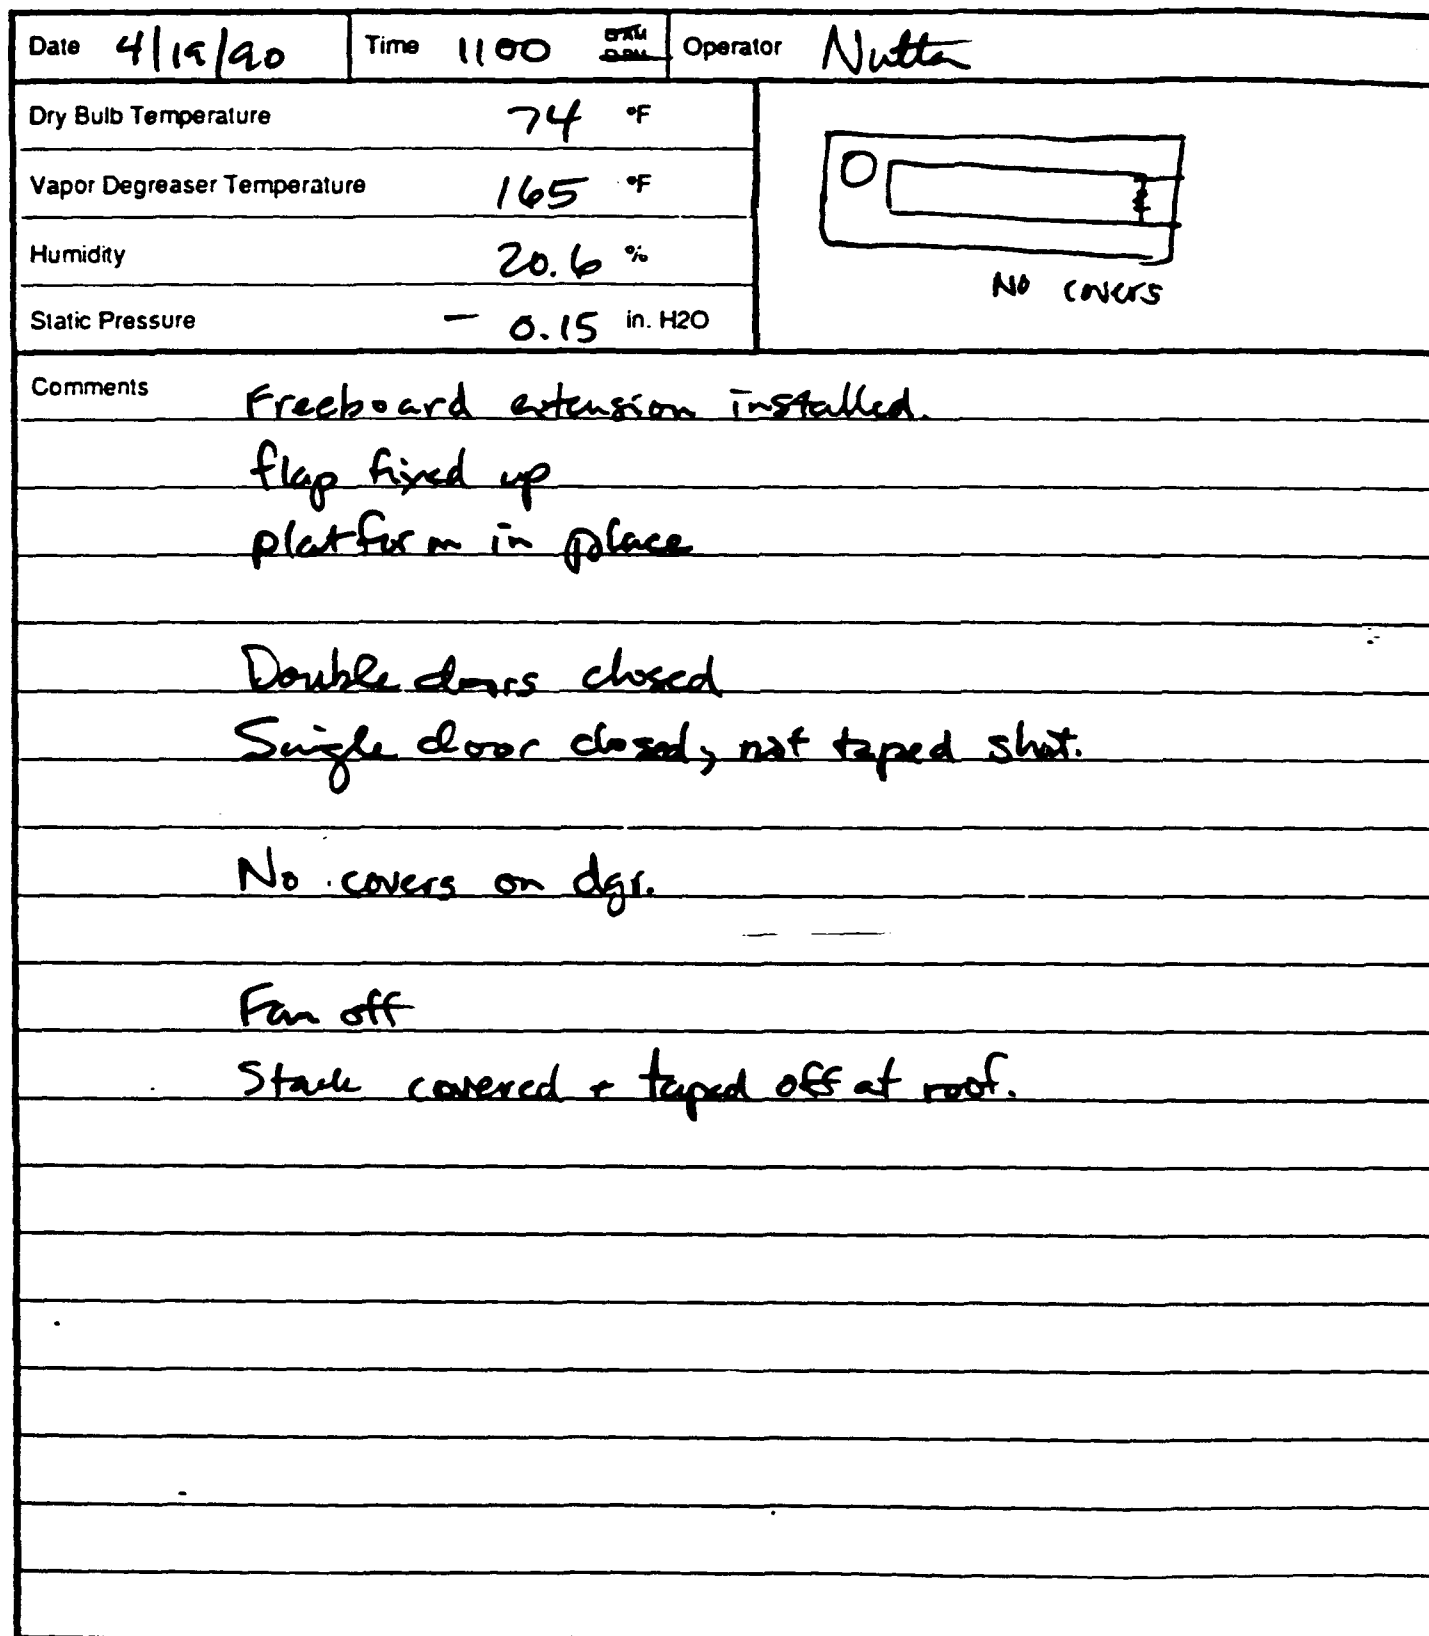 Date 4/19/90 Time 1100 Operator
Dry Bulb Temperature 74 °F
Vapor Degreaser Temperature 165 °F
Humidity 20.6 %
Static Pressure - 0.15 in. H2O
No covers
Comments Freeboard extension installed.
flap fixed up
platform in place
Double doors closed
Single door closed, not taped shut.
No covers on dgr.
Fan off
Stack covered + taped off at roof.